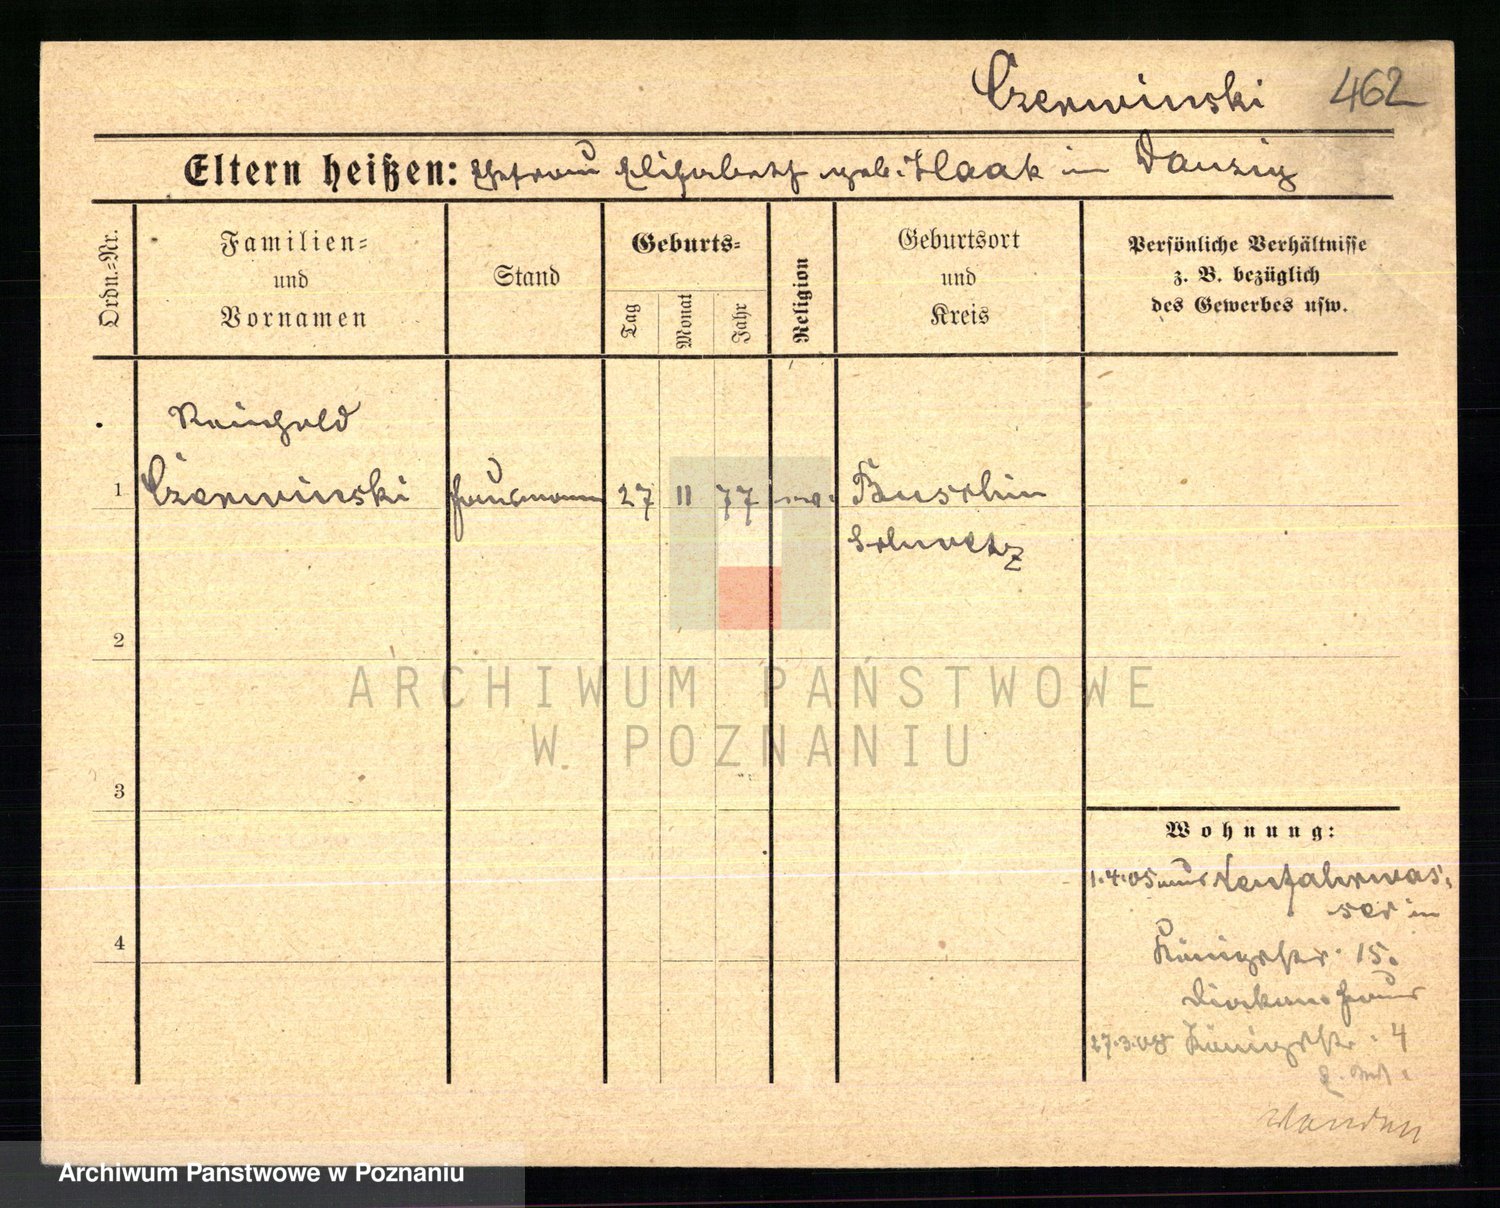 Czerwinski 462
Eltern heißen: Ehefrau Elisabeth geb. Haak in Danzig
Ordn.-Nr.
Familien-
und
Vornamen
Stand
Geburts-
Tag
Monat
Jahr
Religion
Geburtsort
und
Kreis
Persönliche Verhältnisse
z. B. bezüglich
des Gewerbes usw.
Reinhold
1 Czerwinski Hausmann 27 11 77 ev. Buschin
Schwetz
2
3
4
Wohnung:
1.4.05 aus Neufahrwas-
ser in
Königstr. 15.
Diakonissenhaus
27.3.08 Königstr. 4
ARCHIWUM PAŃSTWOWE
W POZNANIU
Archiwum Państwowe w Poznaniu